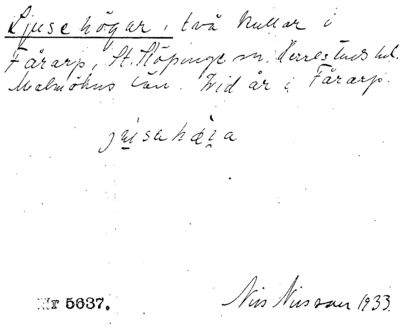 Ljusehögar, två kullar i
Fårarp, St. Köpinge sn. Herrestads hd.
Malmöhus län. Vid år i Fårarp.
Nr 5637.
Nils Nilsson 1933.